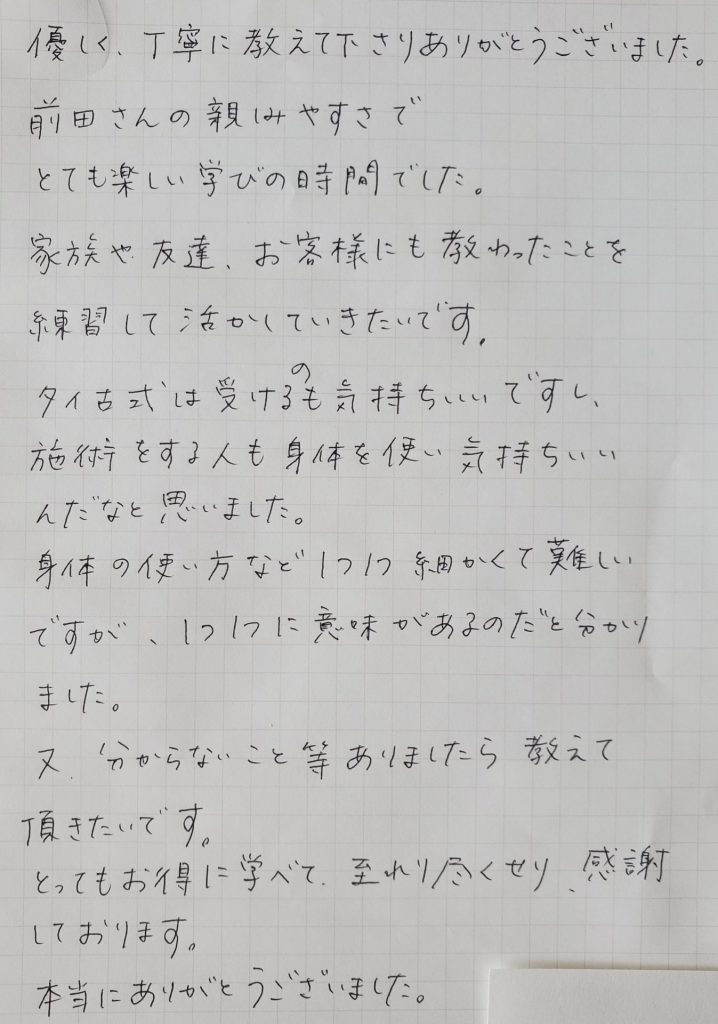 優しく、丁寧に教えて下さりありがとうございました。
前田さんの親しみやすさで
とても楽しい学びの時間でした。
家族や友達、お客様にも教わったことを
練習して活かしていきたいです。
タイ古式は受けるのも気持ちいいですし、
施術をする人も身体を使い気持ちいい
んだなと思いました。
身体の使い方など1つ1つ細かくて難しい
ですが、1つ1つに意味があるのだと分かり
ました。
又、分からないこと等ありましたら教えて
頂きたいです。
とってもお得に学べて、至れり尽くせり、感謝
しております。
本当にありがとうございました。